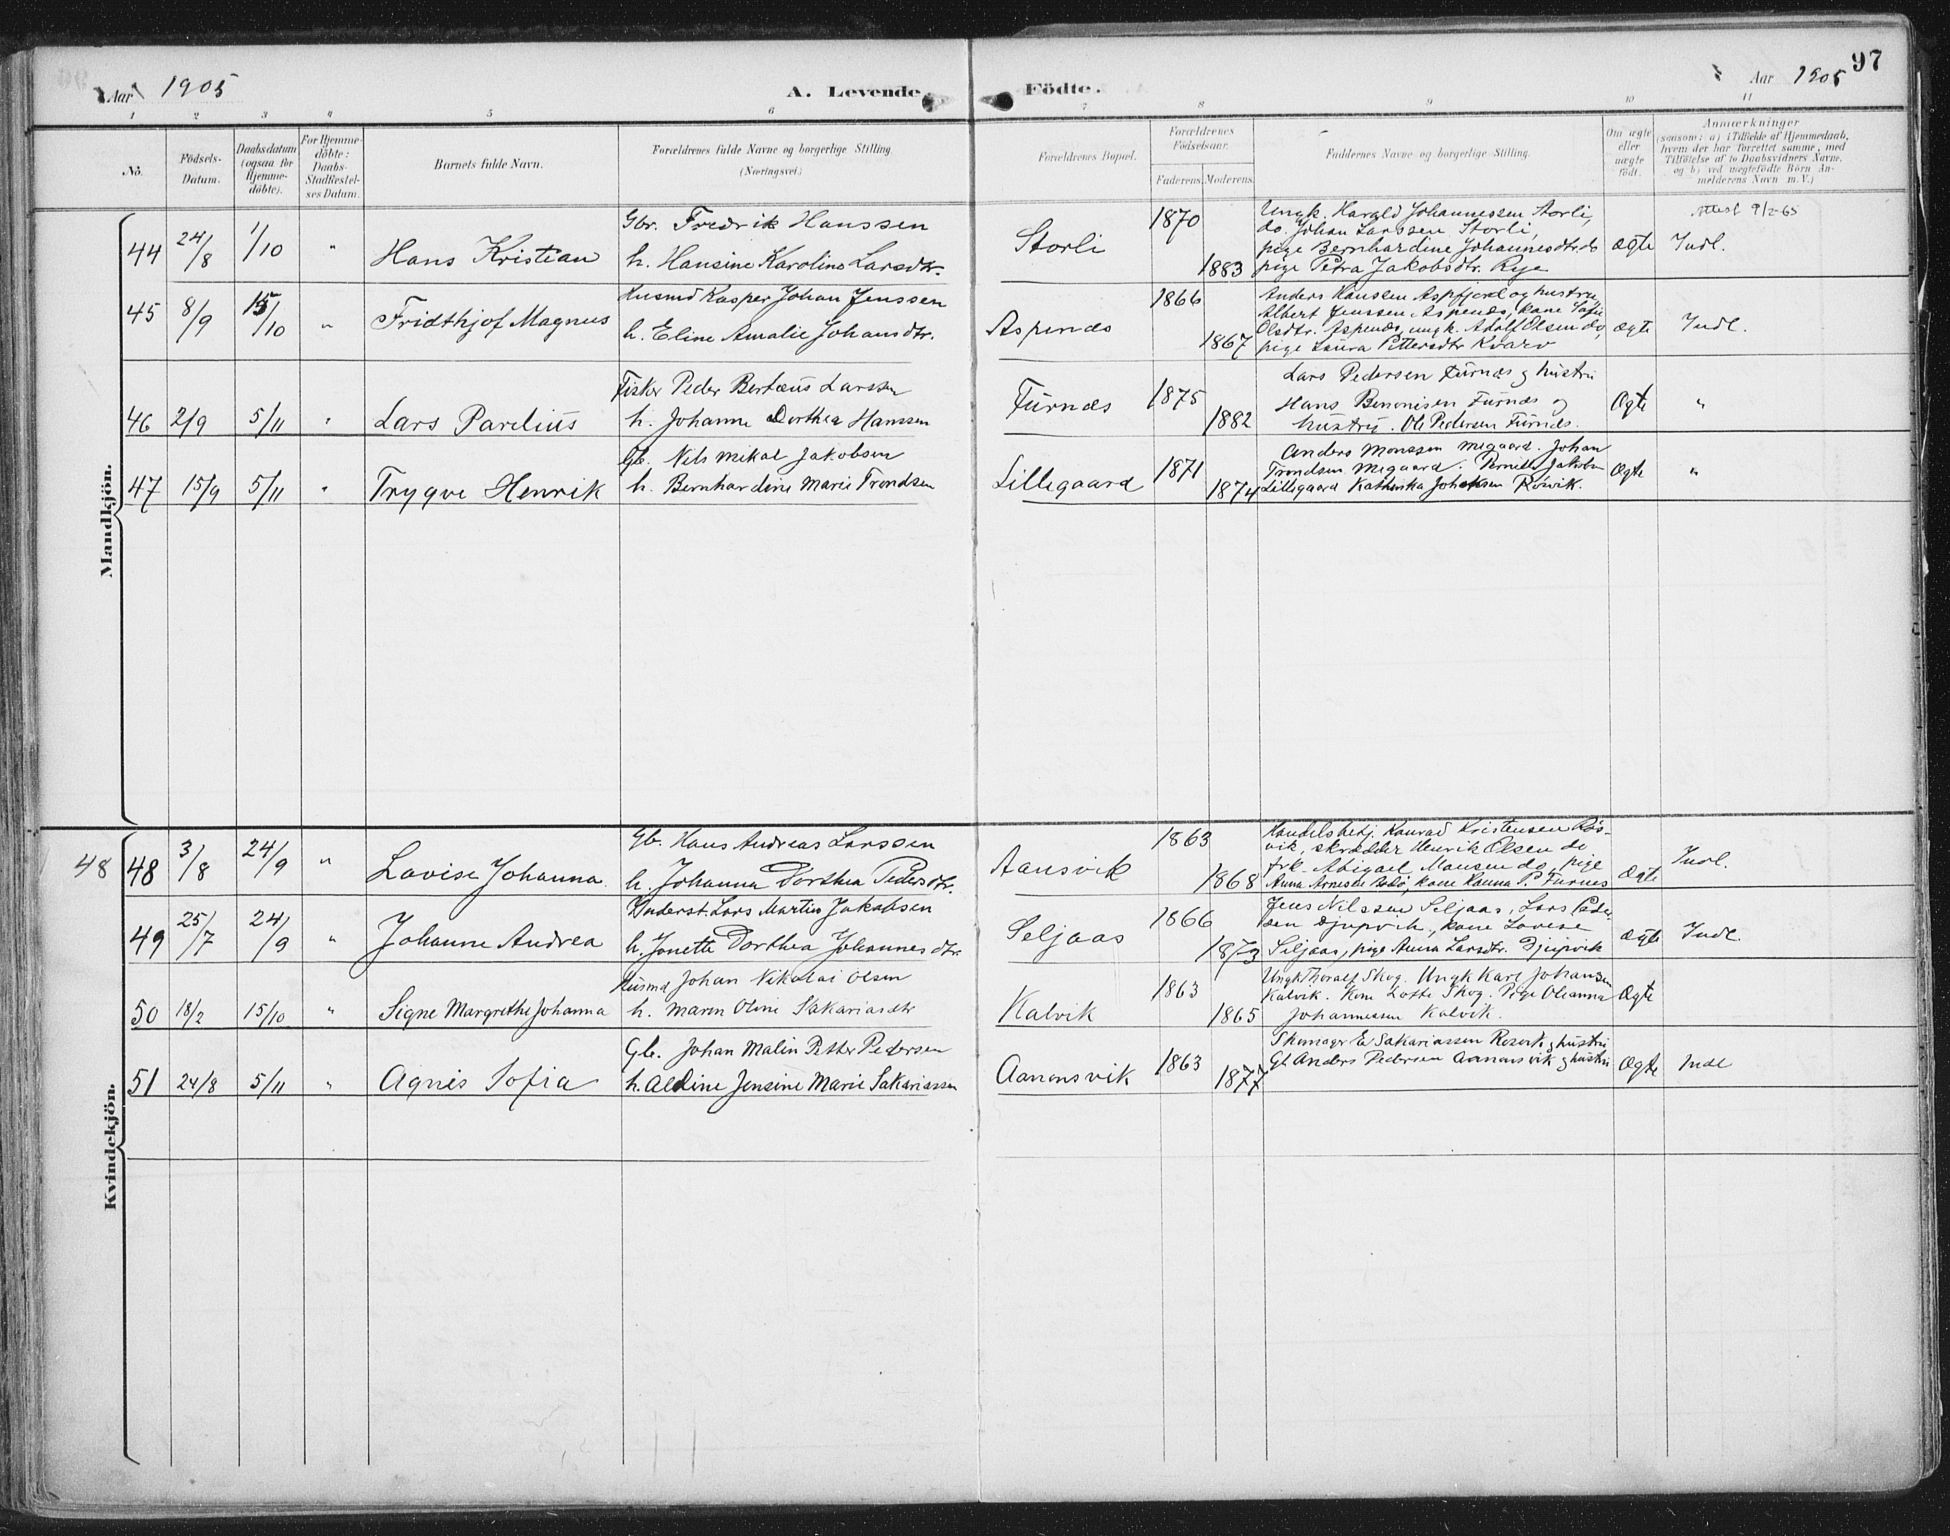 Aar 1905
A. Levende Födte.
Aar 1905
97
1 2 3 4 5 6 7 8 9 10 11
No.
Födsels-Datum.
Daabsdatum (ogsaa for Hjemme-döbte).
For Hjemme-döbte: Daabs-Stadfæstel-ses Datum.
Barnets fulde Navn.
Forældrenes fulde Navne og borgerlige Stilling.
(Næringsvei.)
Forældrenes Bopæl.
Forældrenes Födselsaar.
Faderens. Moderens.
Faddernes Navne og borgerlige Stilling.
Om ægte eller uægte födt.
Anmærkninger
(saasom: a) i Tilfælde af Hjemmedaab, hvem der har forrettet samme, med Tilföielse af to Daabsvidners Navne, og b) ved uægtefödte Börn Anmelderens Navn m. V.)
Mandkjön.
44 24/8 1/10 " Hans Kristian
Gbr. Fredrik Hanssen
h. Hansine Karoline Larsdtr.
Storli 1870 1883
Ungk. Harald Johannessen Storli,
do. Johan Larssen Storli,
pige Bernhardine Johannesdtr. do
pige Petra Jakobsdtr. Rye
ægte Indl.
Attest 9/2-65
45 8/9 15/10 " Fridthjof Magnus
Husmd Kasper Johan Jenssen
h. Eline Amalie Johansdtr.
Aspenæs 1866 1867
Anders Hanssen Aspfjord og hustru,
Albert Jenssen Aspenæs, kone
Olsdtr. Aspenæs, ungk. Adolf Olsen do,
pige Laura Pettersdtr Kvarv
ægte Indl.
46 2/9 5/11 " Lars Parelius
Fisker Peder Bertæus Larssen
h. Johanne Dorthea Hanssen
Furnæs 1875 1882
Lars Pedersen Furnæs & hustru
Hans Benonisen Furnæs og
hustru. Ole Pedersen Furnæs.
Ægte "
47 15/9 5/11 " Trygve Henrik
Gb. Nils Mikal Jakobsen
h. Bernhardine Marie Trondsen
Lillegaard 1871 1874
Anders Monssen Megaard. Johan
Trondsen Megaard. Pernille Jakobsen
Lillegaard Kathinka Johansen Rösvik.
Ægte "
Kvindekjön.
48 48 3/8 24/9 " Lovise Johanna
Gb. Hans Andreas Larssen
h. Johanna Dorthea Pedersdtr.
Aansvik 1863 1868
Handelsbetj. Konrad Kristensen Rös-
vik, skrædder Henrik Olsen do
frk. Abigael Monsen do, pige
Anna Arnesen Bodø, kone Hanna P. Furnes
Ægte Indl.
49 25/7 24/9 " Johanne Andrea
Inderst Lars Martin Jakobsen
h. Jonette Dorthea Johannesdtr.
Seljaas 1866 1873
Jens Nilssen Seljaas, Lars Peder-
sen Djupvik, kone Lovise
Seljaas, pige Anna Larsdtr. Djupvik
ægte Indl.
50 18/2 15/10 " Signe Margrethe Johanna
Husmd Johan Nikolai Olsen
h. Maren Oline Sakariasdtr
Kalvik 1863 1865
Ungk Thoralf Skog. Ungk Karl Johansen
Kalvik. Kone Lotte Skog. Pige Oleanna
Johannessen Kalvik.
Ægte
51 24/8 5/11 " Agnes Sofia
Gb. Johan Malin Petter Pedersen
h. Aldine Jensine Marie Sakariassen
Aanonsvik 1863 1877
Skomager E Sakariassen Rösvik & hustru
Gb Anders Pedersen Aanonsvik & hustru
Ægte Indl